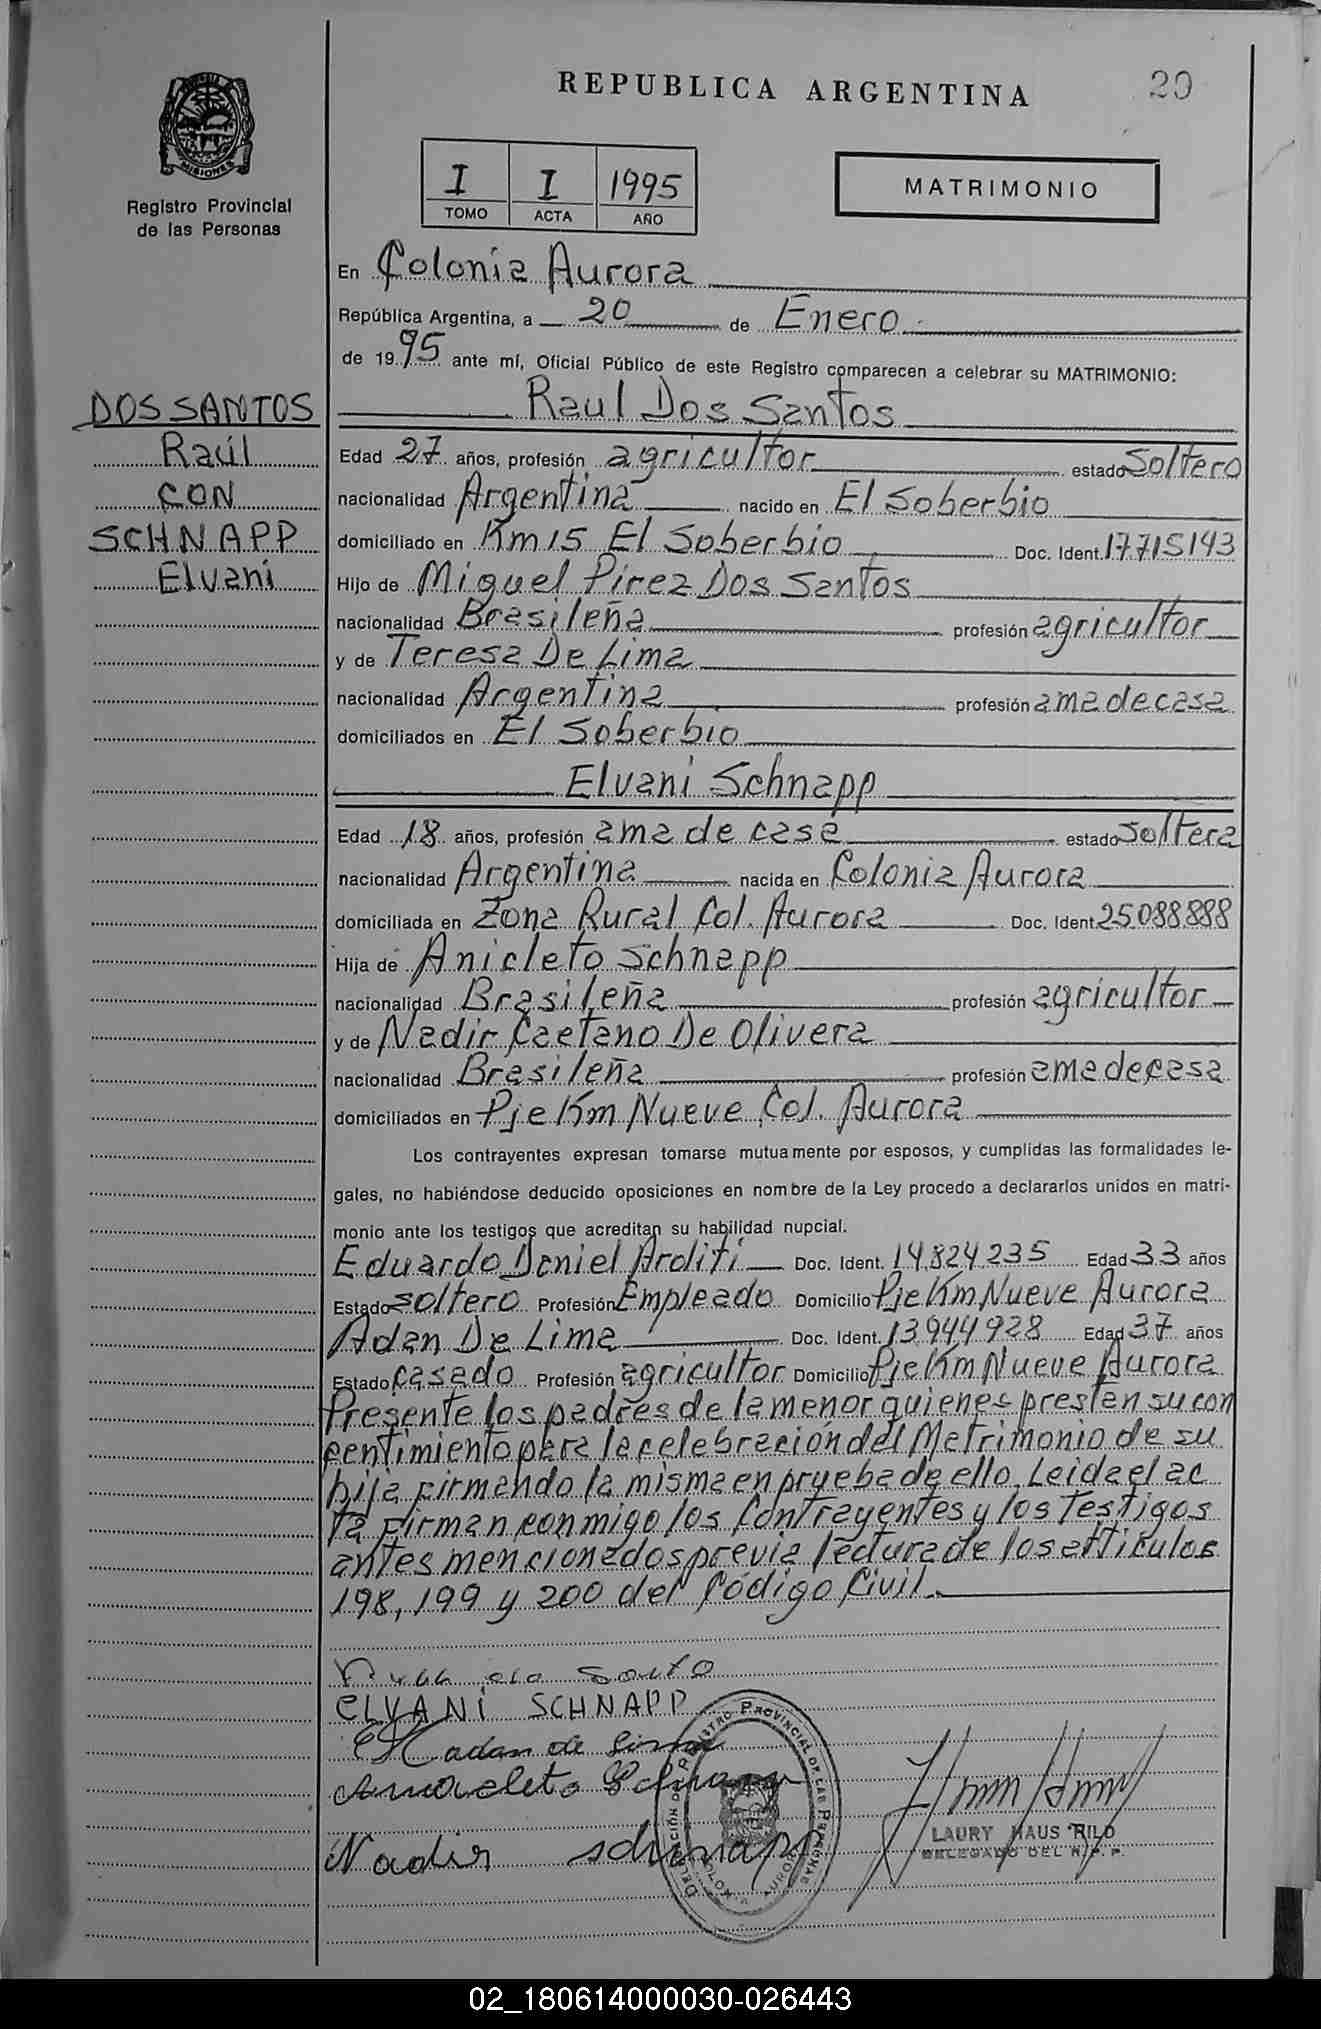 REPUBLICA ARGENTINA
20
MISIONES
Registro Provincial
de las Personas
I I 1995
TOMO ACTA AÑO
MATRIMONIO
En Colonia Aurora
República Argentina, a 20 de Enero
de 1995 ante mí, Oficial Público de este Registro comparecen a celebrar su MATRIMONIO:
DOS SANTOS
Raúl
CON
SCHNAPP
Elvani
Raul Dos Santos
Edad 27 años, profesión agricultor estado Soltero
nacionalidad Argentina nacido en El Soberbio
domiciliado en Km 15 El Soberbio Doc. Ident. 17.715.143
Hijo de Miguel Pirez Dos Santos
nacionalidad Brasileña profesión agricultor
y de Teresa De Lima
nacionalidad Argentina profesión ama de casa
domiciliados en El Soberbio
Elvani Schnapp
Edad 18 años, profesión ama de casa estado soltera
nacionalidad Argentina nacida en Colonia Aurora
domiciliada en Zona Rural Col. Aurora Doc. Ident. 25.088.888
Hija de Anicleto Schnapp
nacionalidad Brasileña profesión agricultor
y de Nadir Caetano De Olivera
nacionalidad Brasileña profesión ama de casa
domiciliados en Pje Km Nueve Col. Aurora
Los contrayentes expresan tomarse mutuamente por esposos, y cumplidas las formalidades le-
gales, no habiéndose deducido oposiciones en nombre de la Ley procedo a declararlos unidos en matri-
monio ante los testigos que acreditan su habilidad nupcial.
Eduardo Daniel Arditi Doc. Ident. 14.824.235 Edad 33 años
Estado soltero Profesión Empleado Domicilio Pje Km Nueve Aurora
Adan De Lima Doc. Ident. 13.944.928 Edad 37 años
Estado casado Profesión agricultor Domicilio Pje Km Nueve Aurora
Presente los padres de la menor quienes prestan su con
sentimiento para la celebración del Matrimonio de su
hija firmando la misma en prueba de ello. Leida el ac
ta firman conmigo los Contrayentes y los Testigos
antes mencionados previa lectura de los artículos
198, 199 y 200 del Código Civil.
ELVANI SCHNAPP
adan de Lima
Nadir schnapp
REGISTRO PROVINCIAL DE LAS PERSONAS
LAURY HAUS RILO
DELEGADO DEL R. P. P.
02_180614000030-026443